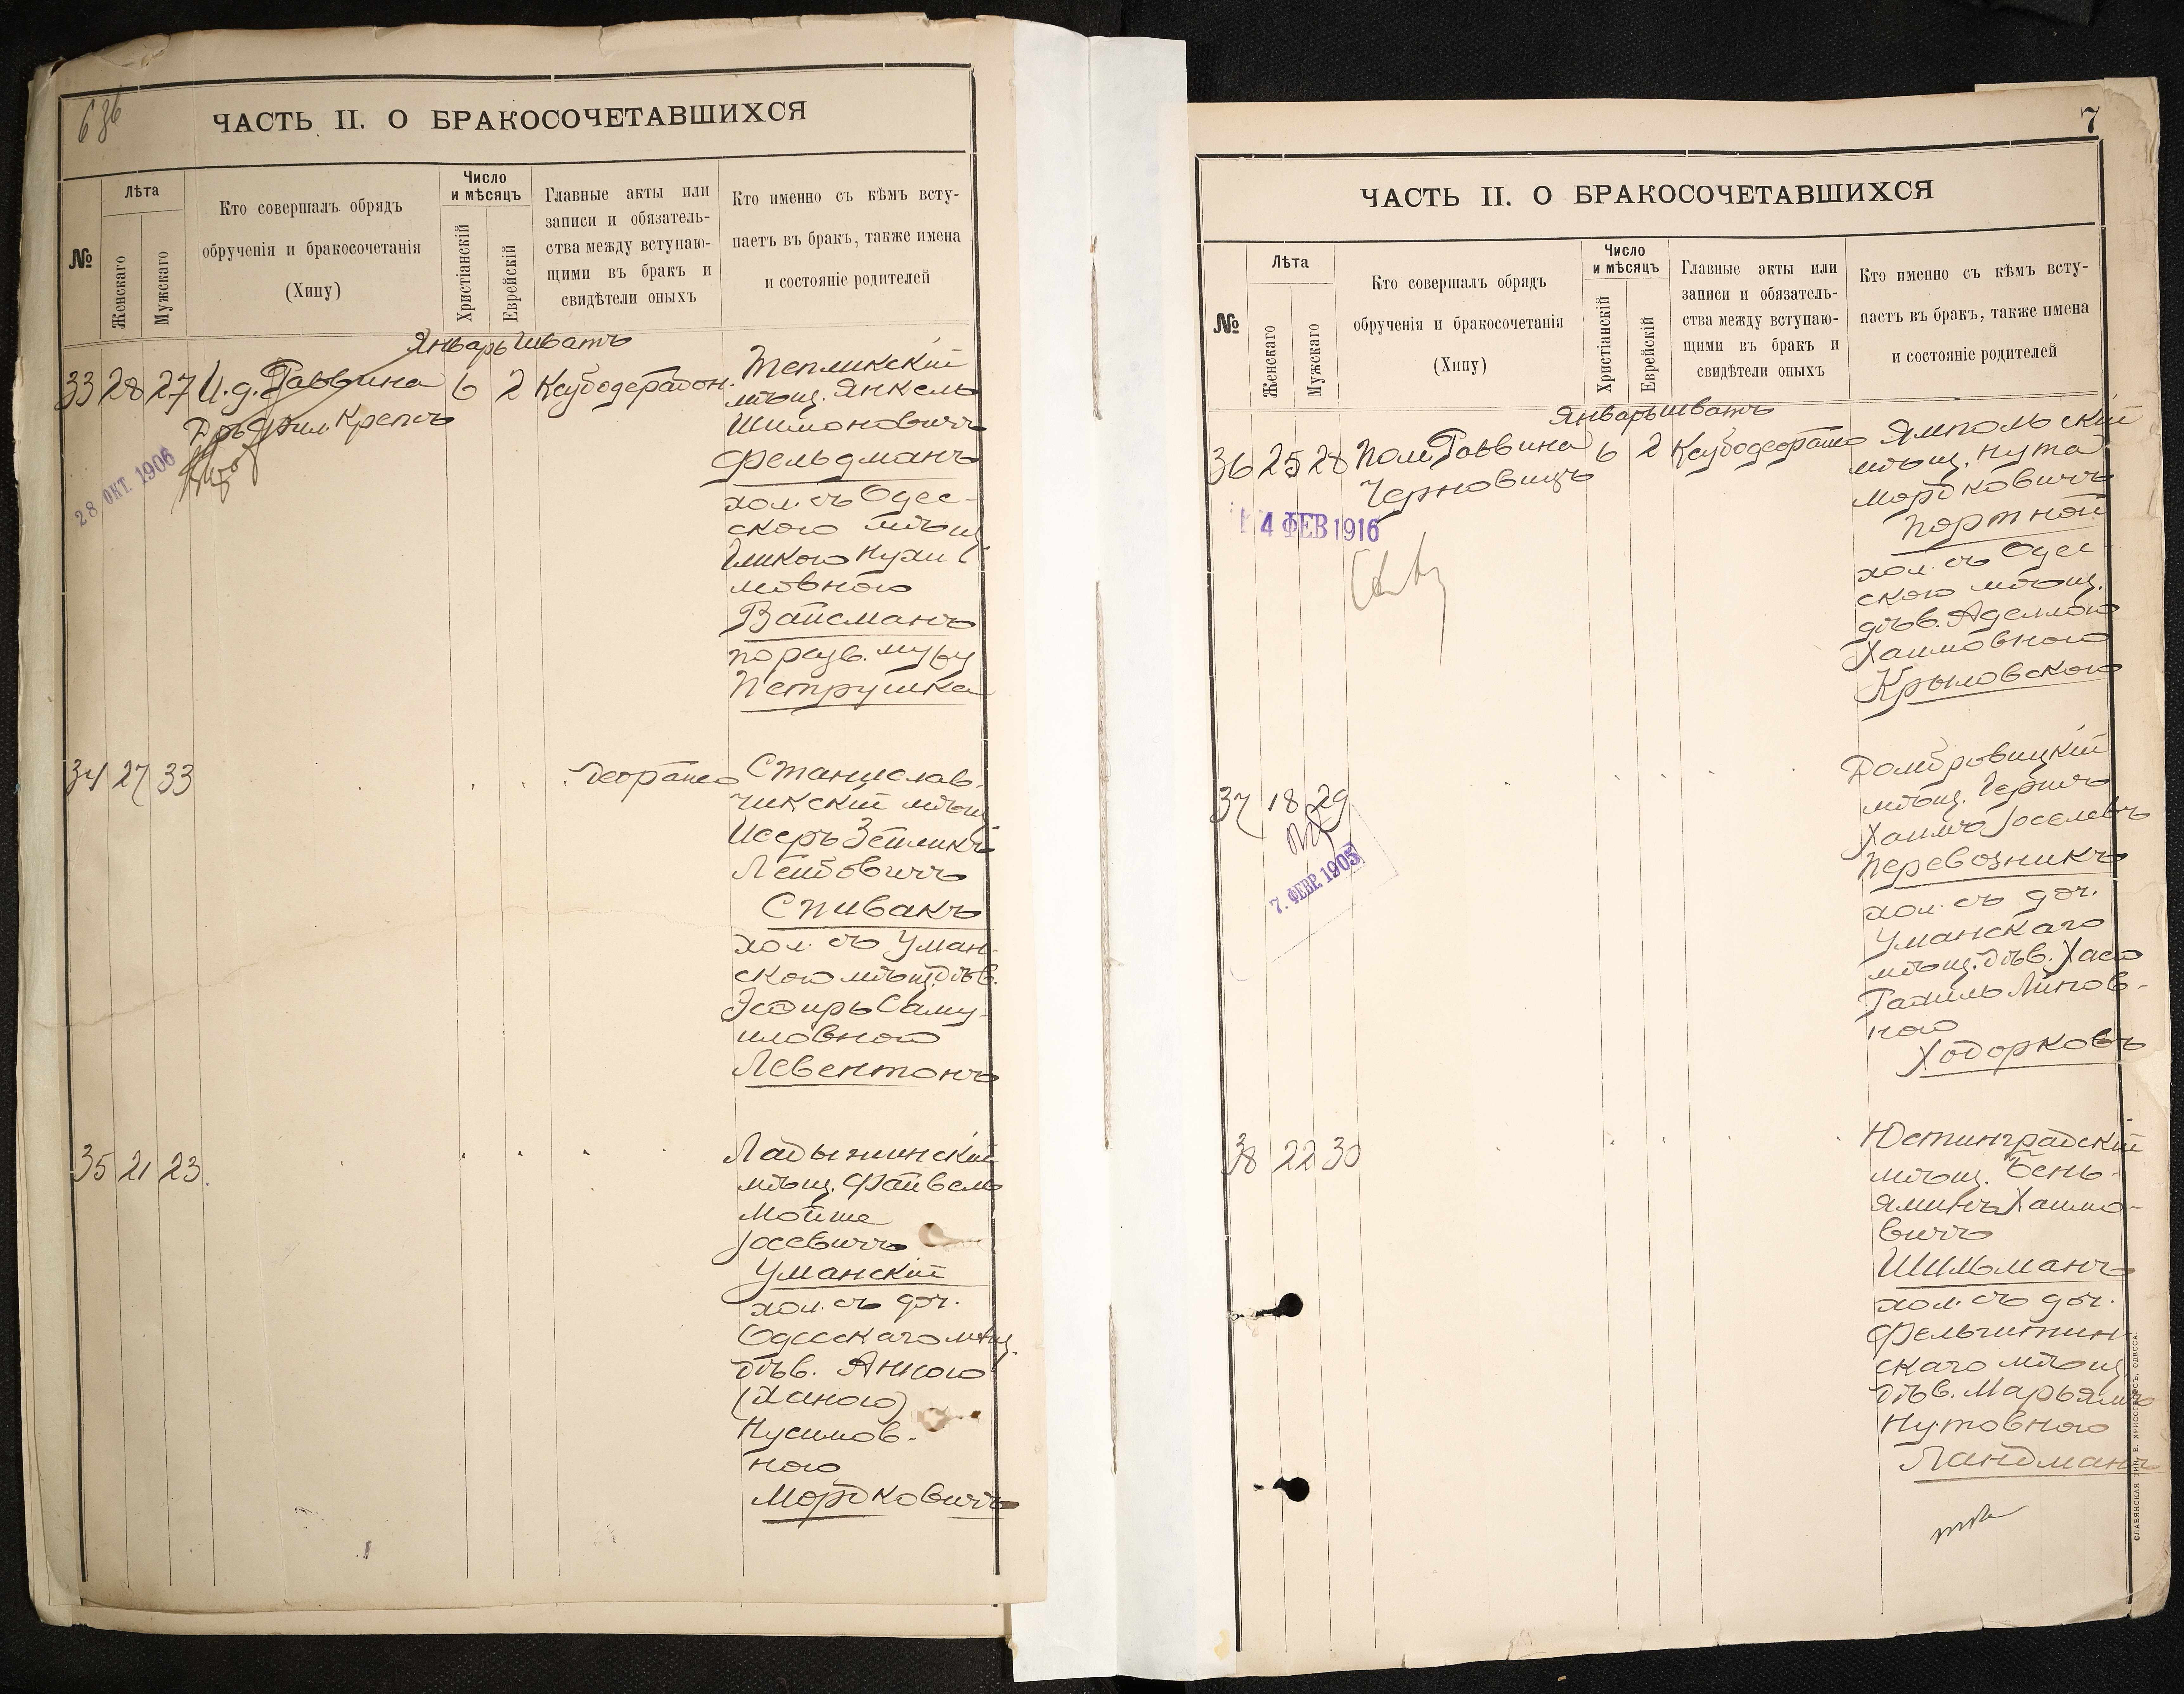 636
ЧАСТЬ II. О БРАКОСОЧЕТАВШИХСЯ
№
Лѣта
Женскаго
Мужскаго
Кто совершалъ обрядъ
обрученія и бракосочетанія
(Хипу)
Число
и мѣсяцъ
Христіанскій
Еврейскій
Главные акты или
записи и обязатель-
ства между вступаю-
щими въ бракъ и
свидѣтели оныхъ
Кто именно съ кѣмъ всту-
паетъ въ бракъ, также имена
и состояніе родителей
Январь Шватъ
33 28 27 И. д. Раввина 6 2 Ксубодерабон.
Дръ Фил. Крепсъ
28 ОКТ. 1906
Тепликскій
мѣщ. Янкель
Шимоновичъ
Фельдманъ
хол. съ Одес-
скою мѣщ.
Гиткою Нухи
мовною
Вайсманъ
по разв. мужу
Петрушка
34 27 33 Деорайсо
Станислав-
чикский мѣщ.
Исеръ Зейликъ
Лейбовичъ
Спивакъ
хол. съ Уман-
скою мѣщ. дѣв.
Эсѳирь Саму-
иловною
Левентонъ
35 21 23.
Ладыжинскій
мѣщ. Файвель
Мойше
Іосевичъ
Уманскій
хол. съ доч.
Одесскаго мѣщ.
дѣв. Анною
(Ханою)
Нусимов-
ною
Мордковичъ
7
ЧАСТЬ II. О БРАКОСОЧЕТАВШИХСЯ
№
Лѣта
Женскаго
Мужскаго
Кто совершалъ обрядъ
обрученія и бракосочетанія
(Хипу)
Число
и мѣсяцъ
Христіанскій
Еврейскій
Главные акты или
записи и обязатель-
ства между вступаю-
щими въ бракъ и
свидѣтели оныхъ
Кто именно съ кѣмъ всту-
паетъ въ бракъ, также имена
и состояніе родителей
Январь Шватъ
36 25 28 Пом. Раввина 6 2 Ксубодеорайсо
Черновицъ
4 ФЕВ 1916
Ямпольскій
мѣщ. Нута
Мордковичъ
Портной
хол. съ Одес-
скою мѣщ.
дѣв. Аделлою
Хаимовною
Крымовскою
37 18 29
7. ФЕВР. 1905
Домбровицкій
мѣщ. Гершъ
Хаимъ Іоселевъ
Перевозникъ
хол. съ доч.
Уманскаго
мѣщ. дѣв. Хаею
Рахиль Линов-
ною
Ходорковъ
38 22 30
Юстинградскій
мѣщ. Бень-
яминъ Хаимо-
вичъ
Шильманъ
хол. съ доч.
Фельштин
скаго мѣщ.
дѣв. Марьямъ
Нутовною
Ландманъ
СЛАВЯНСКАЯ ТИП. Е. ХРИСОГЕЛОСЪ, ОДЕССА.